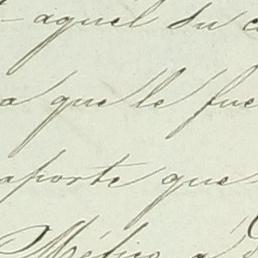 aquel su
a que le fue
aporte que
Médico, á